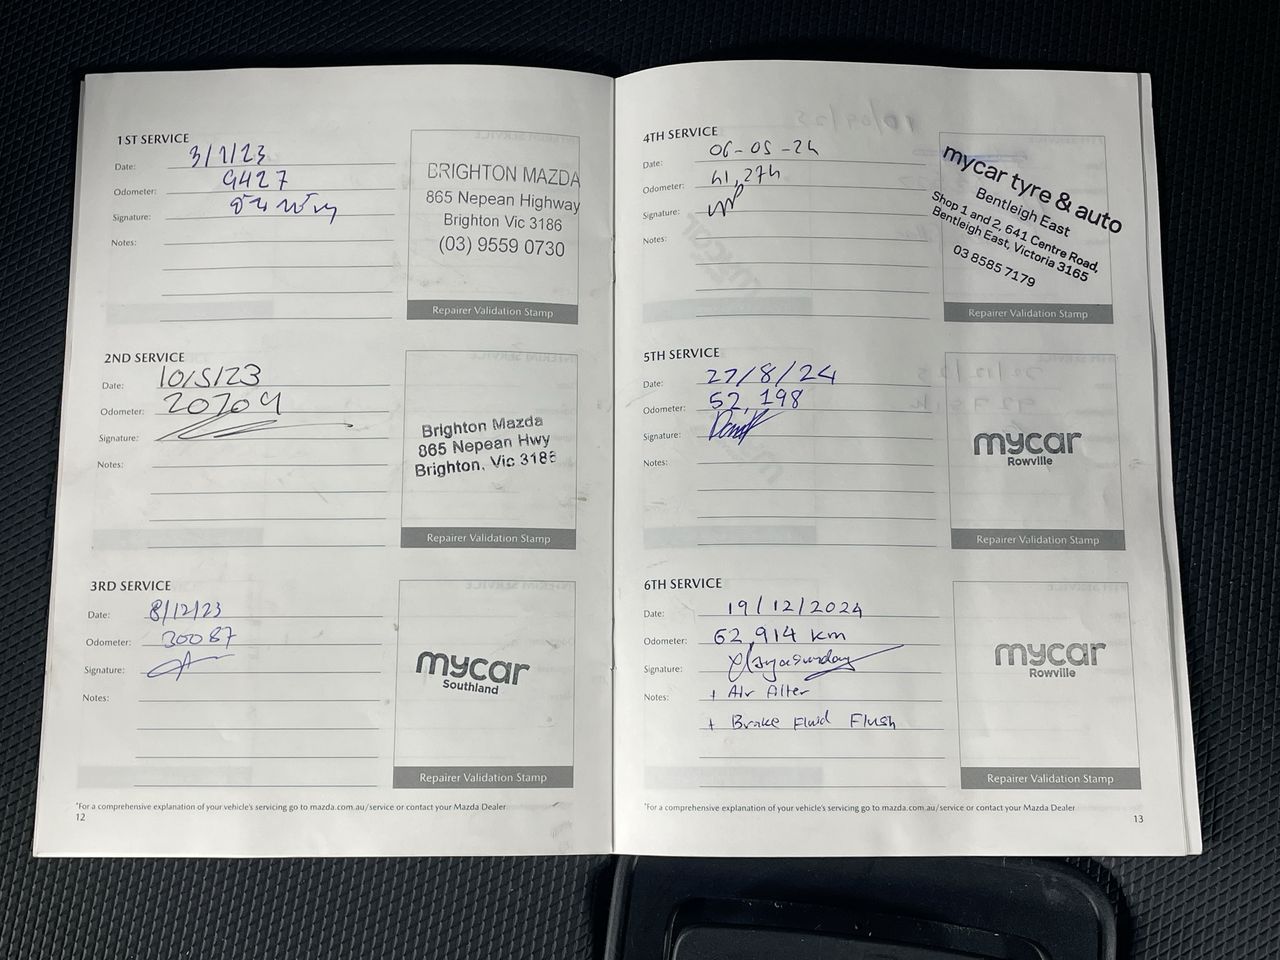 1ST SERVICE
Date: 3/1/23
Odometer: 9427
Signature:
Notes:
BRIGHTON MAZDA
865 Nepean Highway
Brighton Vic 3186
(03) 9559 0730
Repairer Validation Stamp
2ND SERVICE
Date: 10/5/23
Odometer: 20709
Signature:
Notes:
Brighton Mazda
865 Nepean Hwy
Brighton, Vic 3186
Repairer Validation Stamp
3RD SERVICE
Date: 8/12/23
Odometer: 30087
Signature:
Notes:
mycar
Southland
Repairer Validation Stamp
*For a comprehensive explanation of your vehicle's servicing go to mazda.com.au/service or contact your Mazda Dealer
12
4TH SERVICE
Date: 06-05-24
Odometer: 41,274
Signature:
Notes:
mycar tyre & auto
Bentleigh East
Shop 1 and 2, 641 Centre Road,
Bentleigh East, Victoria 3165
03 8585 7179
Repairer Validation Stamp
5TH SERVICE
Date: 27/8/24
Odometer: 52,198
Signature:
Notes:
mycar
Rowville
Repairer Validation Stamp
6TH SERVICE
Date: 19/12/2024
Odometer: 62,914 km
Signature:
Notes: + Air Filter
+ Brake Fluid Flush
mycar
Rowville
Repairer Validation Stamp
*For a comprehensive explanation of your vehicle's servicing go to mazda.com.au/service or contact your Mazda Dealer
13